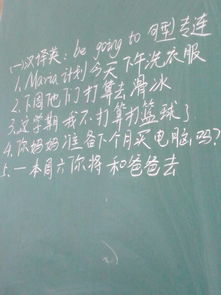 (一)汉译英：be going to 句型专练
1. Maria 计划今天下午洗衣服
2.下周他们打算去滑冰
3.这学期我不打算打篮球了.
4.你妈妈准备下个月买电脑吗?
5.一本周六你将和爸爸去